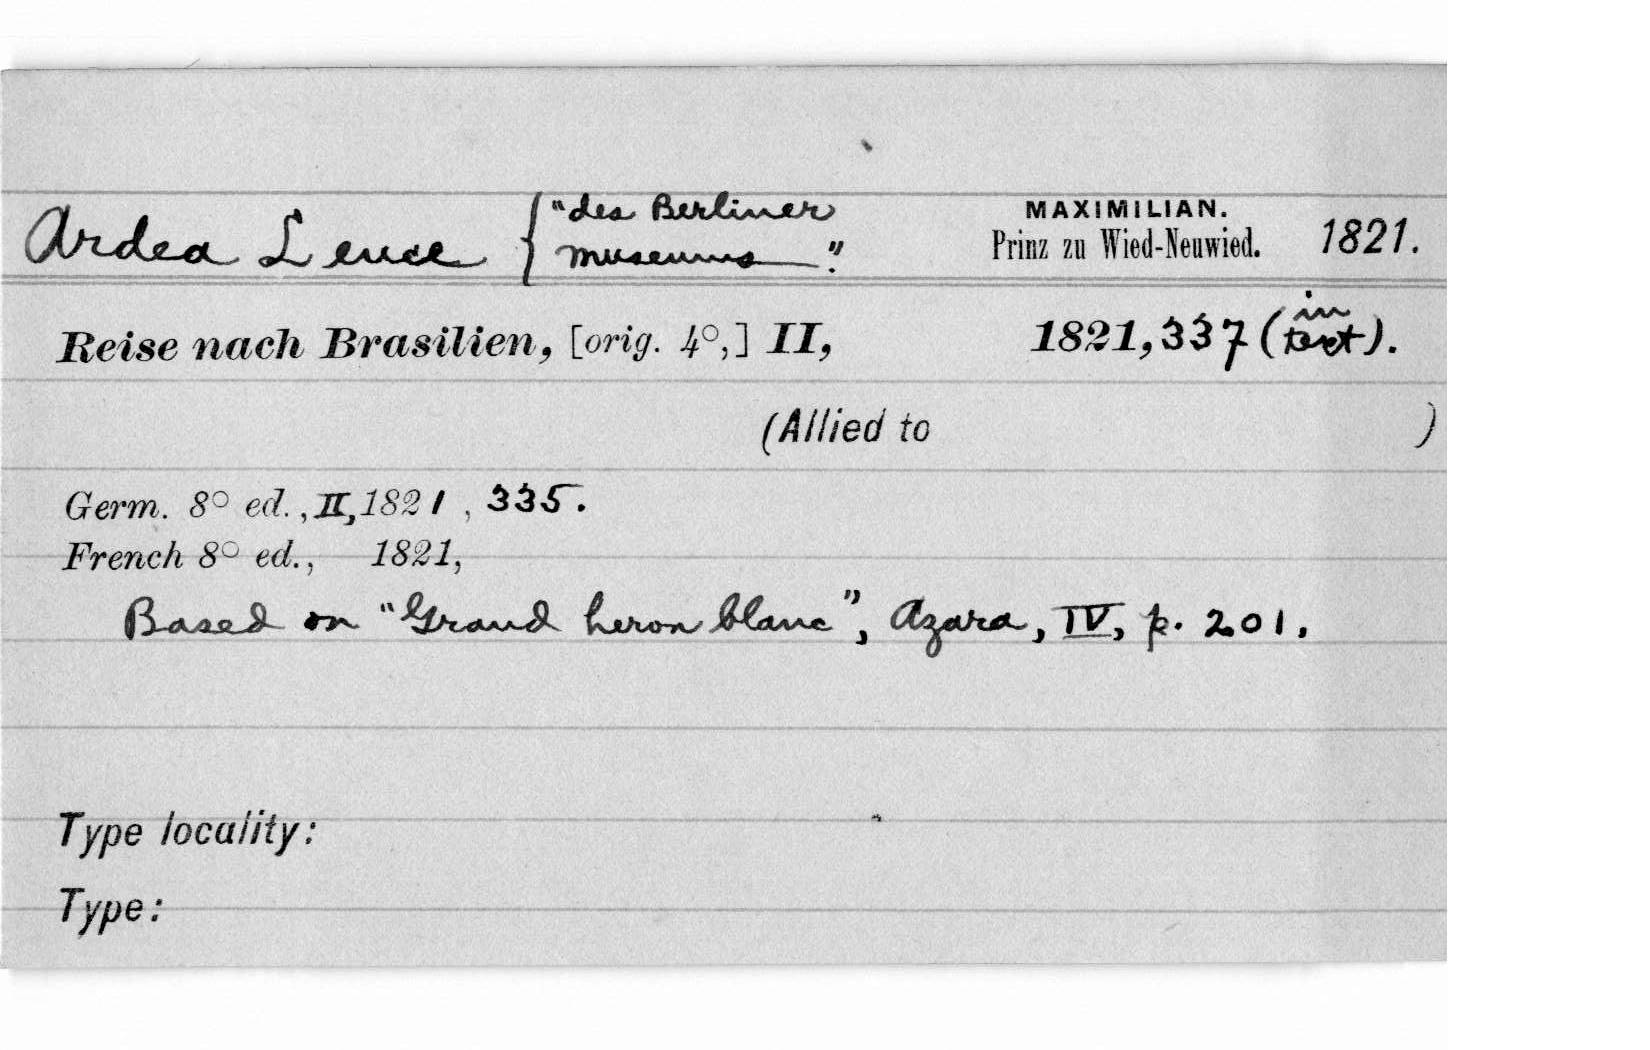 Ardea Leuce { "des Berliner museums". MAXIMILIAN. Prinz zu Wied-Neuwied. 1821.
Reise nach Brasilien, [orig. 4°,] II, 1821, 337 (in text).
(Allied to )
Germ. 8° ed., II, 1821, 335.
French 8° ed., 1821,
Based on "Grand heron blanc", Azara, IV, p. 201.
Type locality:
Type: